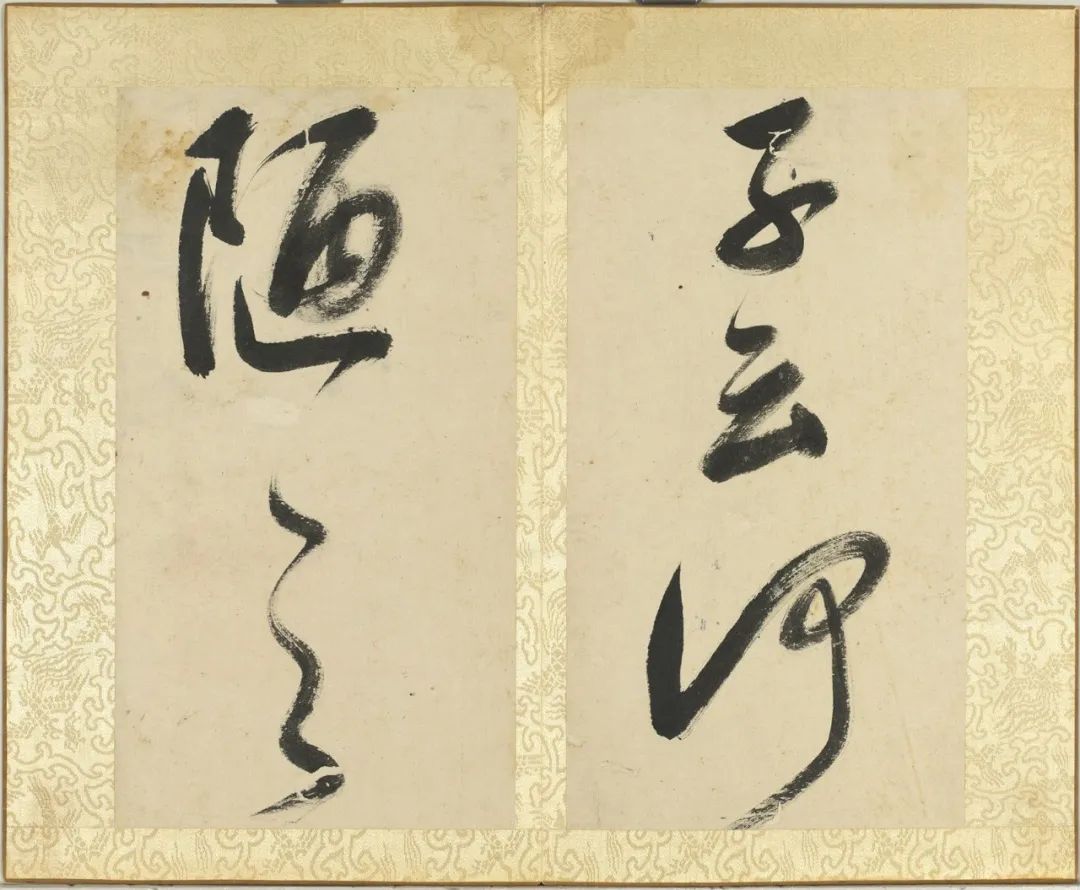 子云何
陋之